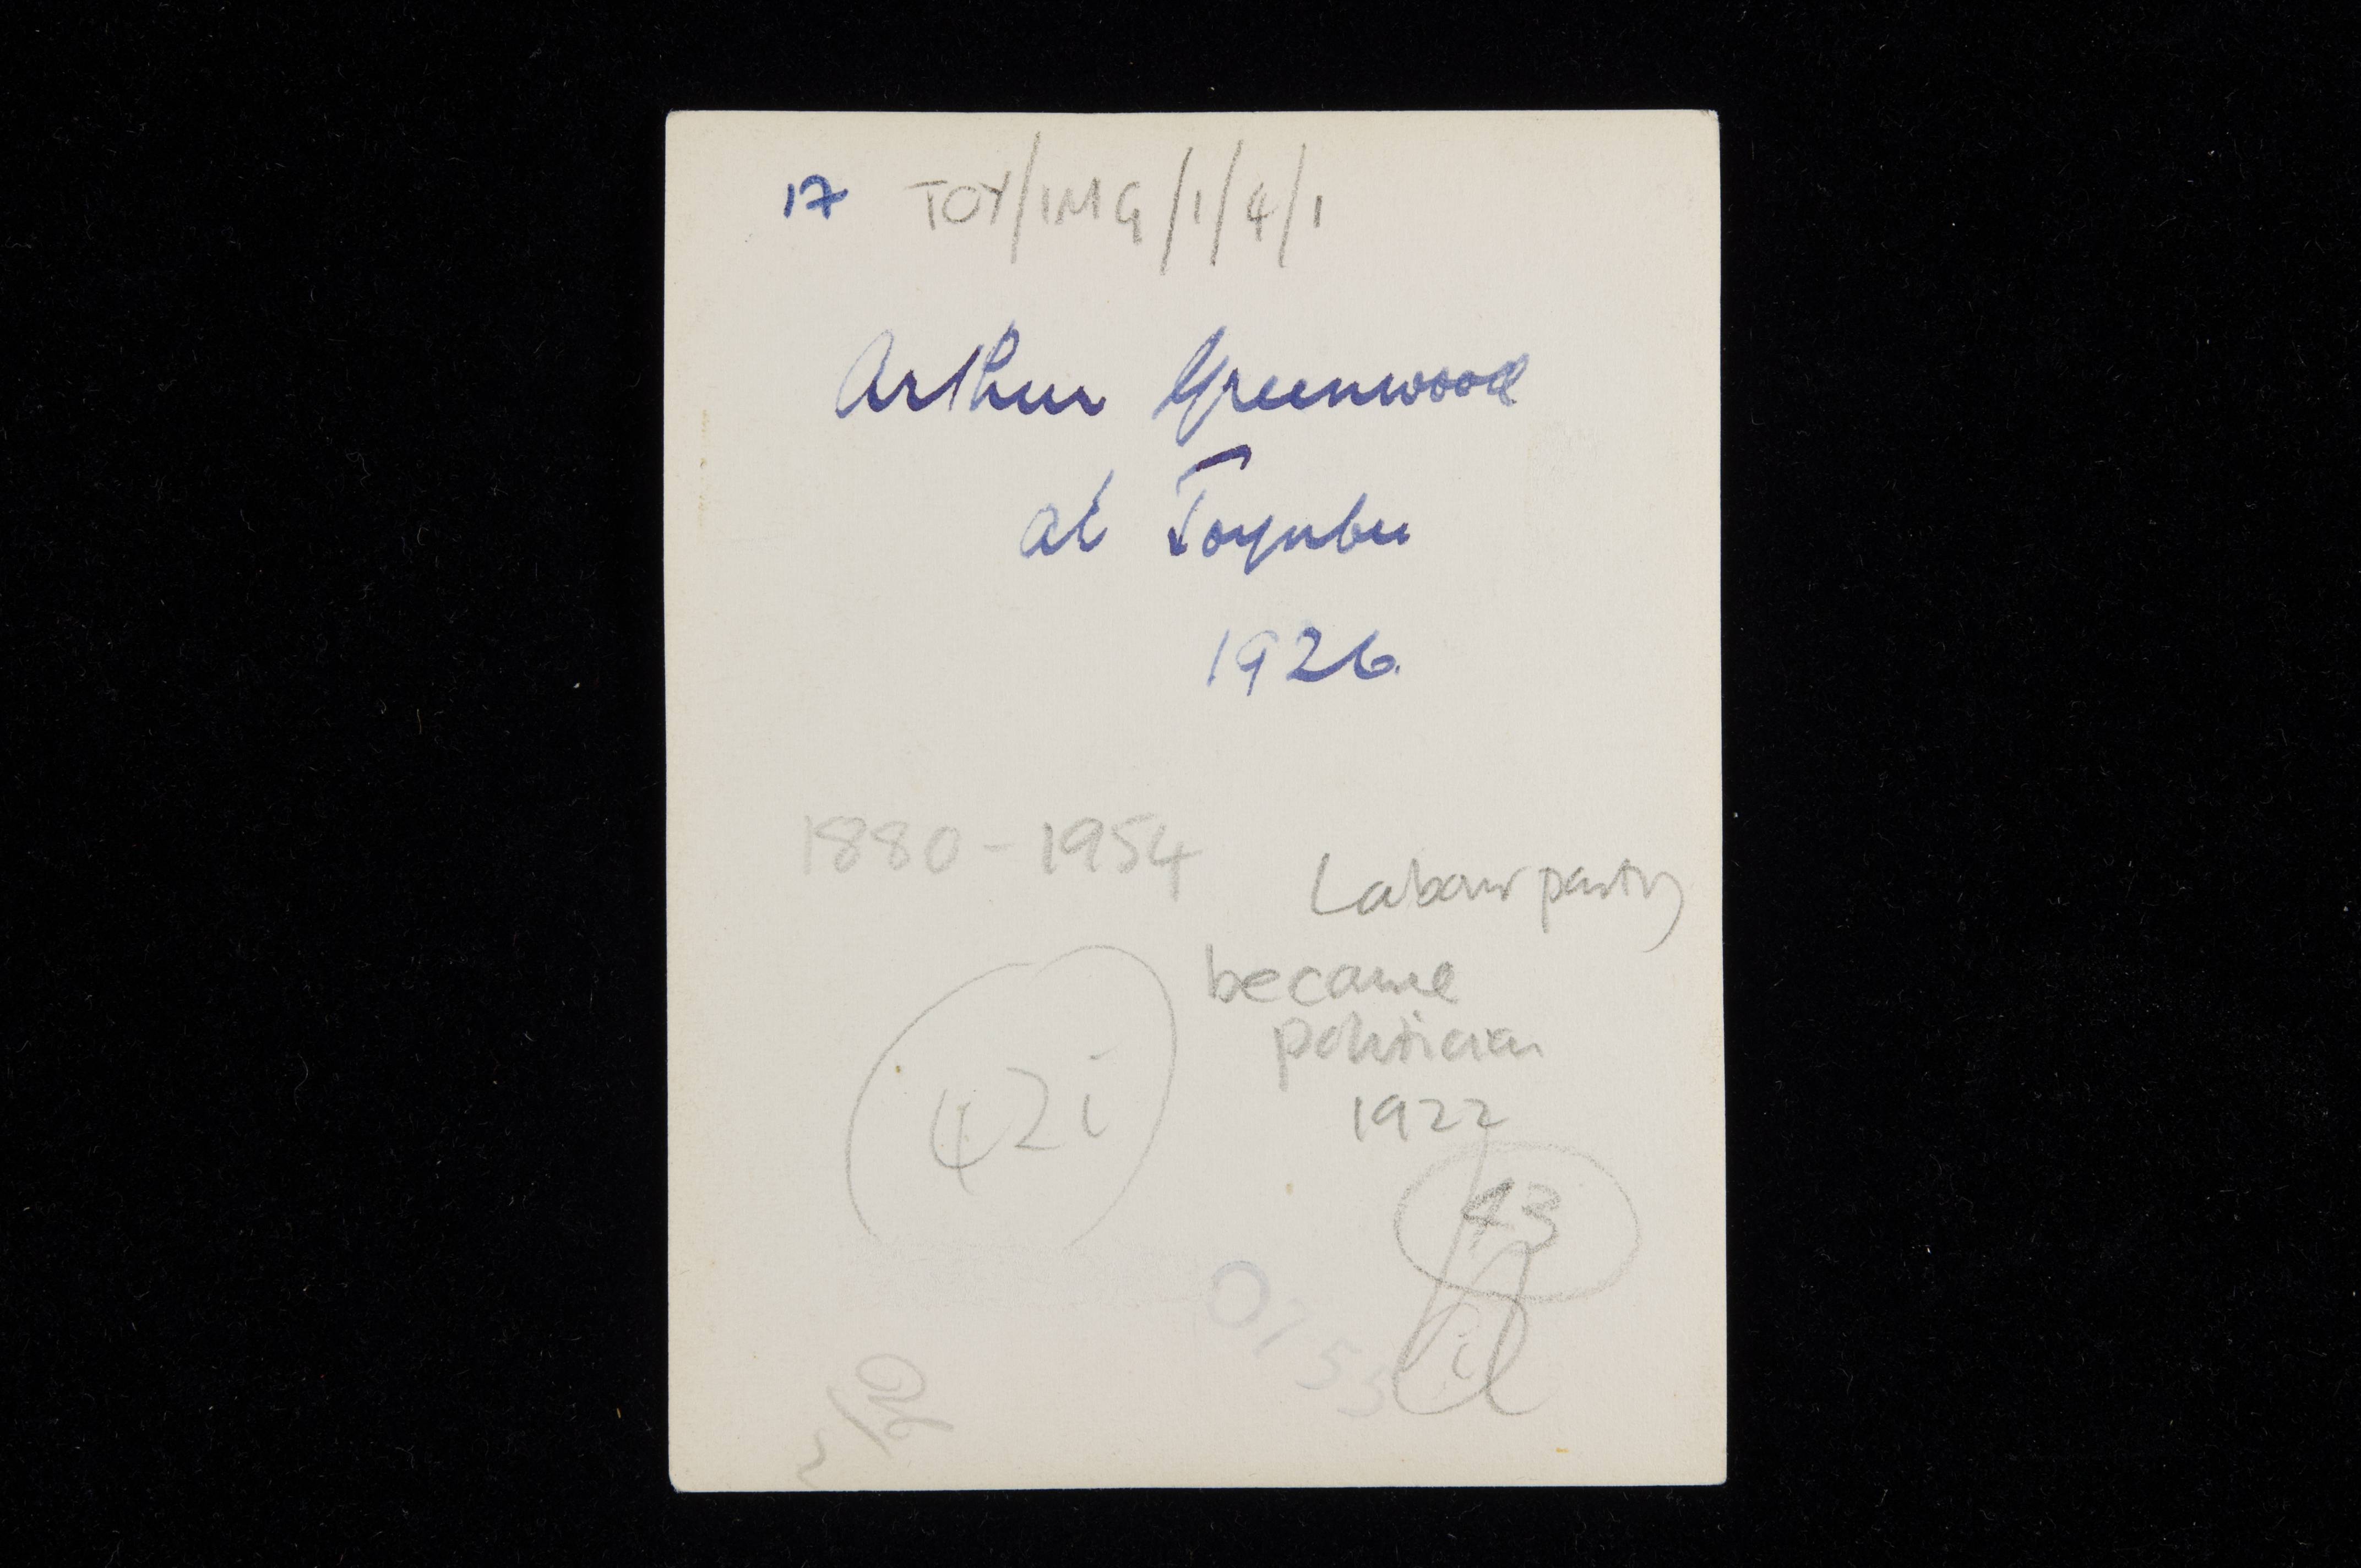 17 TOY/IMG/1/4/1
Arthur Greenwood
at Toynbee
1926
1880-1954
Labour party
became
politician
1922
42i
43
i